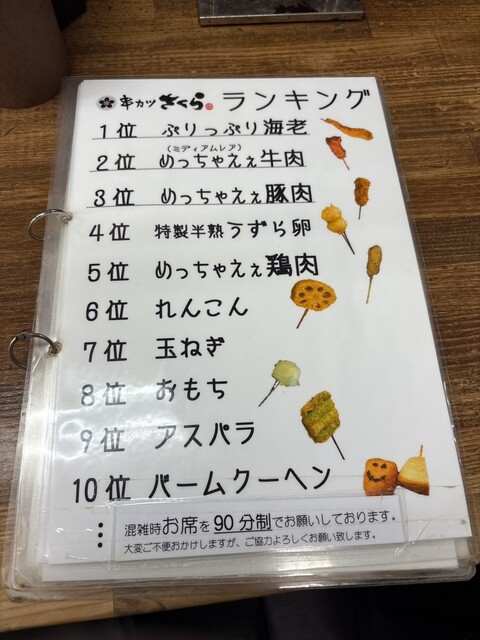 串カツ さくら ランキング
1位 ぷりっぷり海老
(ミディアムレア)
2位 めっちゃええ牛肉
3位 めっちゃええ豚肉
4位 特製半熟うずら卵
5位 めっちゃええ鶏肉
6位 れんこん
7位 玉ねぎ
8位 おもち
9位 アスパラ
10位 バームクーヘン
混雑時お席を90分制でお願いしております。
大変ご不便おかけしますが、ご協力よろしくお願い致します。